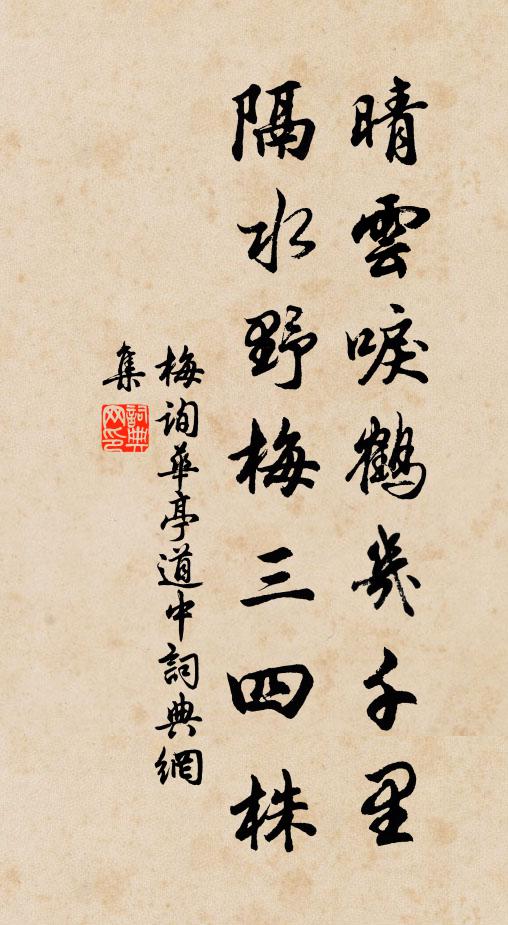 晴雲唳鶴幾千里
隔水野梅三四株
梅詢華亭道中詞典網
集
詞典
网印